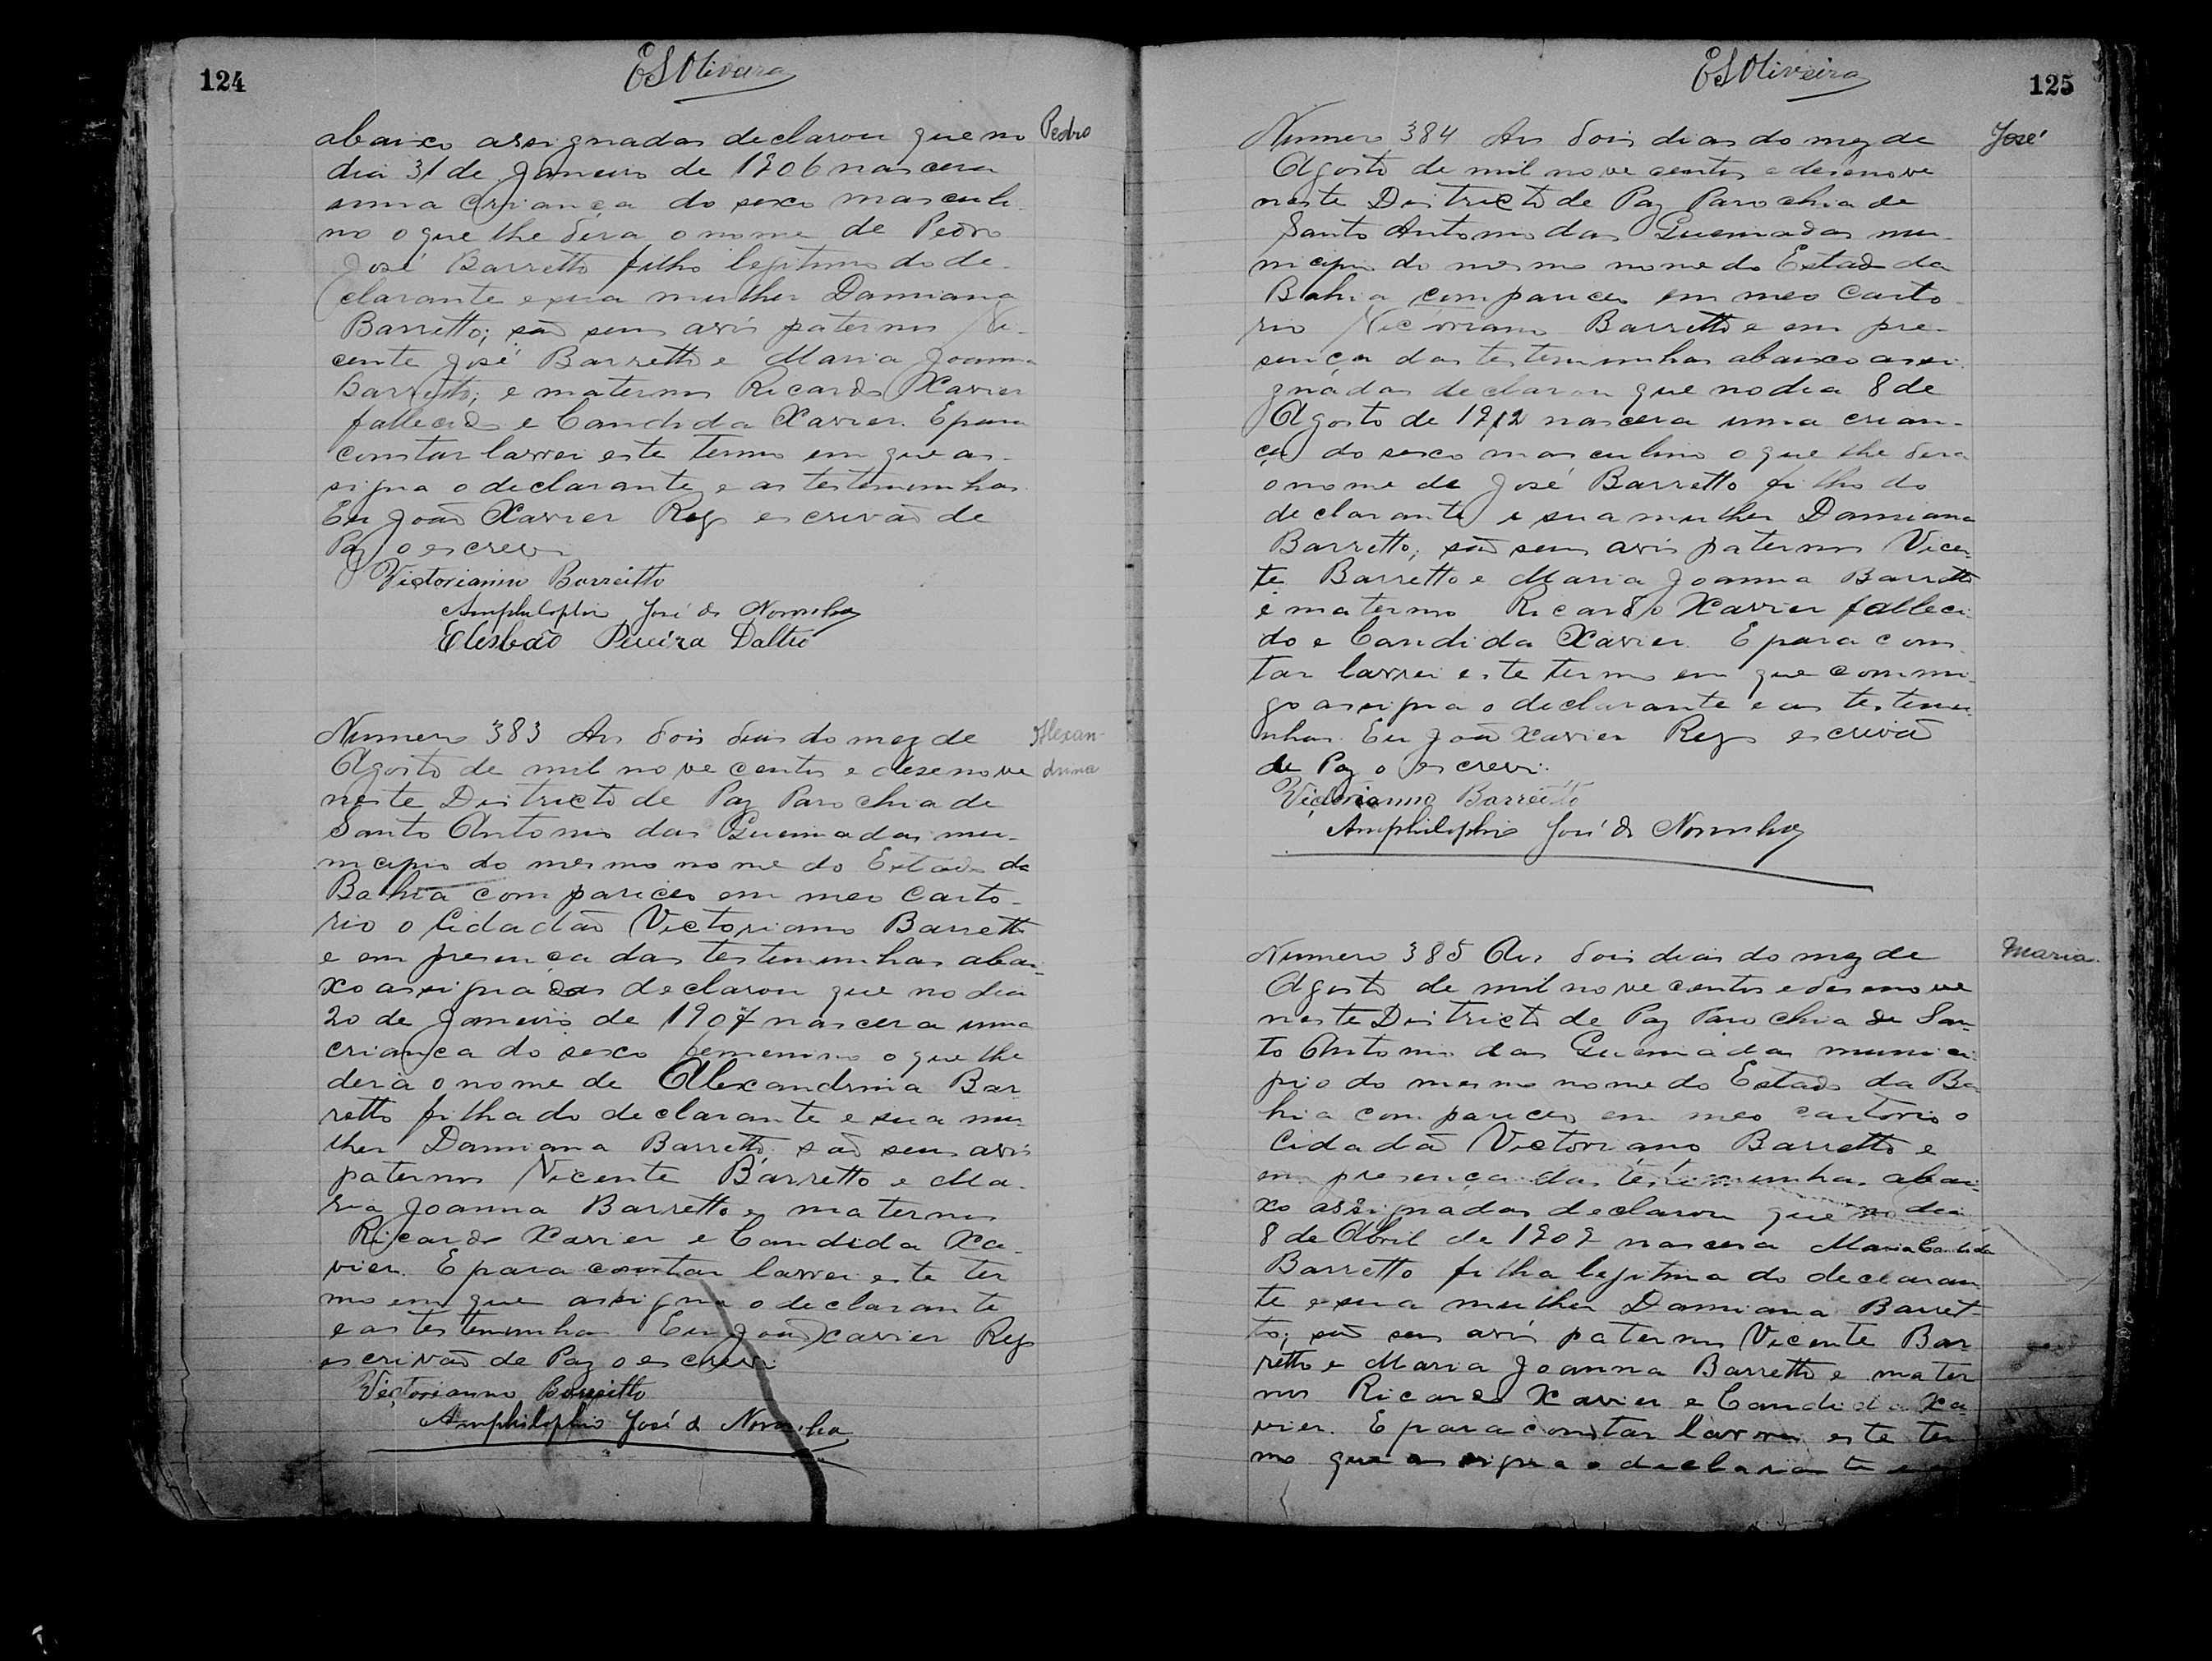 124
ESOliveira
abaixo assignadas declarou que no
Pedro
dia 31 de Janeiro de 1906 nascera
uma criança do sexo masculi-
no o que lhe dera o nome de Pedro
José Barretto filho legitimo do de-
clarante e sua mulher Damiana
Barretto; são seus avós paternos Vi-
cente José Barretto e Maria Joanna
Barretto; e maternos Ricardo Xavier
fallecido e Candida Xavier. E para
constar lavrei este termo em que as-
signa o declarante e as testemunhas.
Eu João Xavier Reys escrivão de
Paz o escrevi
Victorianno Barreitto
Amphilophio José de Noronha
Elesbão Pereira Daltro
Numero 383 Aos dois dias do mez de
Alexan-
Agosto de mil nove centos e desenove
drina
neste Districto de Paz Parochia de
Santo Antonio das Queimadas mu-
nicipio do mesmo nome do Estado da
Bahia compareceo em meo Carto-
rio o Cidadão Victoriano Barretto
e em presença das testemunhas abai-
xo assignadas declarou que no dia
20 de Janeiro de 1907 nascera uma
criança do sexo femenino o que lhe
dera o nome de Alexandrina Bar-
retto filha do declarante e sua mu-
lher Damiana Barretto, são seus avós
paternos Vicente Barretto e Ma-
ria Joanna Barretto e maternos
Ricardo Xavier e Candida Xa-
vier. E para constar lavrei este ter
mo em que assigna o declarante
e as testemunhas Eu João Xavier Reys
escrivão de Paz o escrevi
Victorianno Barreitto
Amphilophio José de Noronha
ESOliveira
125
Numero 384 Aos dois dias do mez de
José
Agosto de mil nove centos e desenove
neste Districto de Paz Parochia de
Santo Antonio das Queimadas mu-
nicipio do mesmo nome do Estado da
Bahia compareceo em meo Carto-
rio Victoriano Barretto e em pre-
sença das testemunhas abaixo assi-
gnadas declarou que no dia 8 de
Agosto de 1912 nascera uma crian-
ça do sexo masculino o que lhe dera
o nome de José Barretto filho do
declarante e sua mulher Damiana
Barretto, são seus avós paternos Vicen-
te Barretto e Maria Joanna Barretto
e materno Ricardo Xavier falleci-
do e Candida Xavier. E para cons-
tar lavrei este termo em que commi-
go assigna o declarante e as testemu-
nhas. Eu João Xavier Reys escrivão
de Paz o escrevi.
Victorianno Barreitto
Amphilophio José de Noronha
Numero 385 Aos dois dias do mez de
Maria
Agosto de mil nove centos e desenove
neste Districto de Paz Parochia de San-
to Antonio das Queimadas munici-
pio do mesmo nome do Estado da Ba-
hia compareceo em meo cartorio o
Cidadão Victoriano Barretto e
em presença das testemunhas abai-
xo assignadas declarou que no dia
8 de Abril de 1909 nascera Maria Candida
Barretto filha legitima do declaran
te e sua mulher Damiana Barret-
to; são seus avós paternos Vicente Bar
retto e Maria Joanna Barretto e mater
nos Ricardo Xavier e Candida Xa-
vier. E para constar lavrei este ter
mo que assigna o declarante